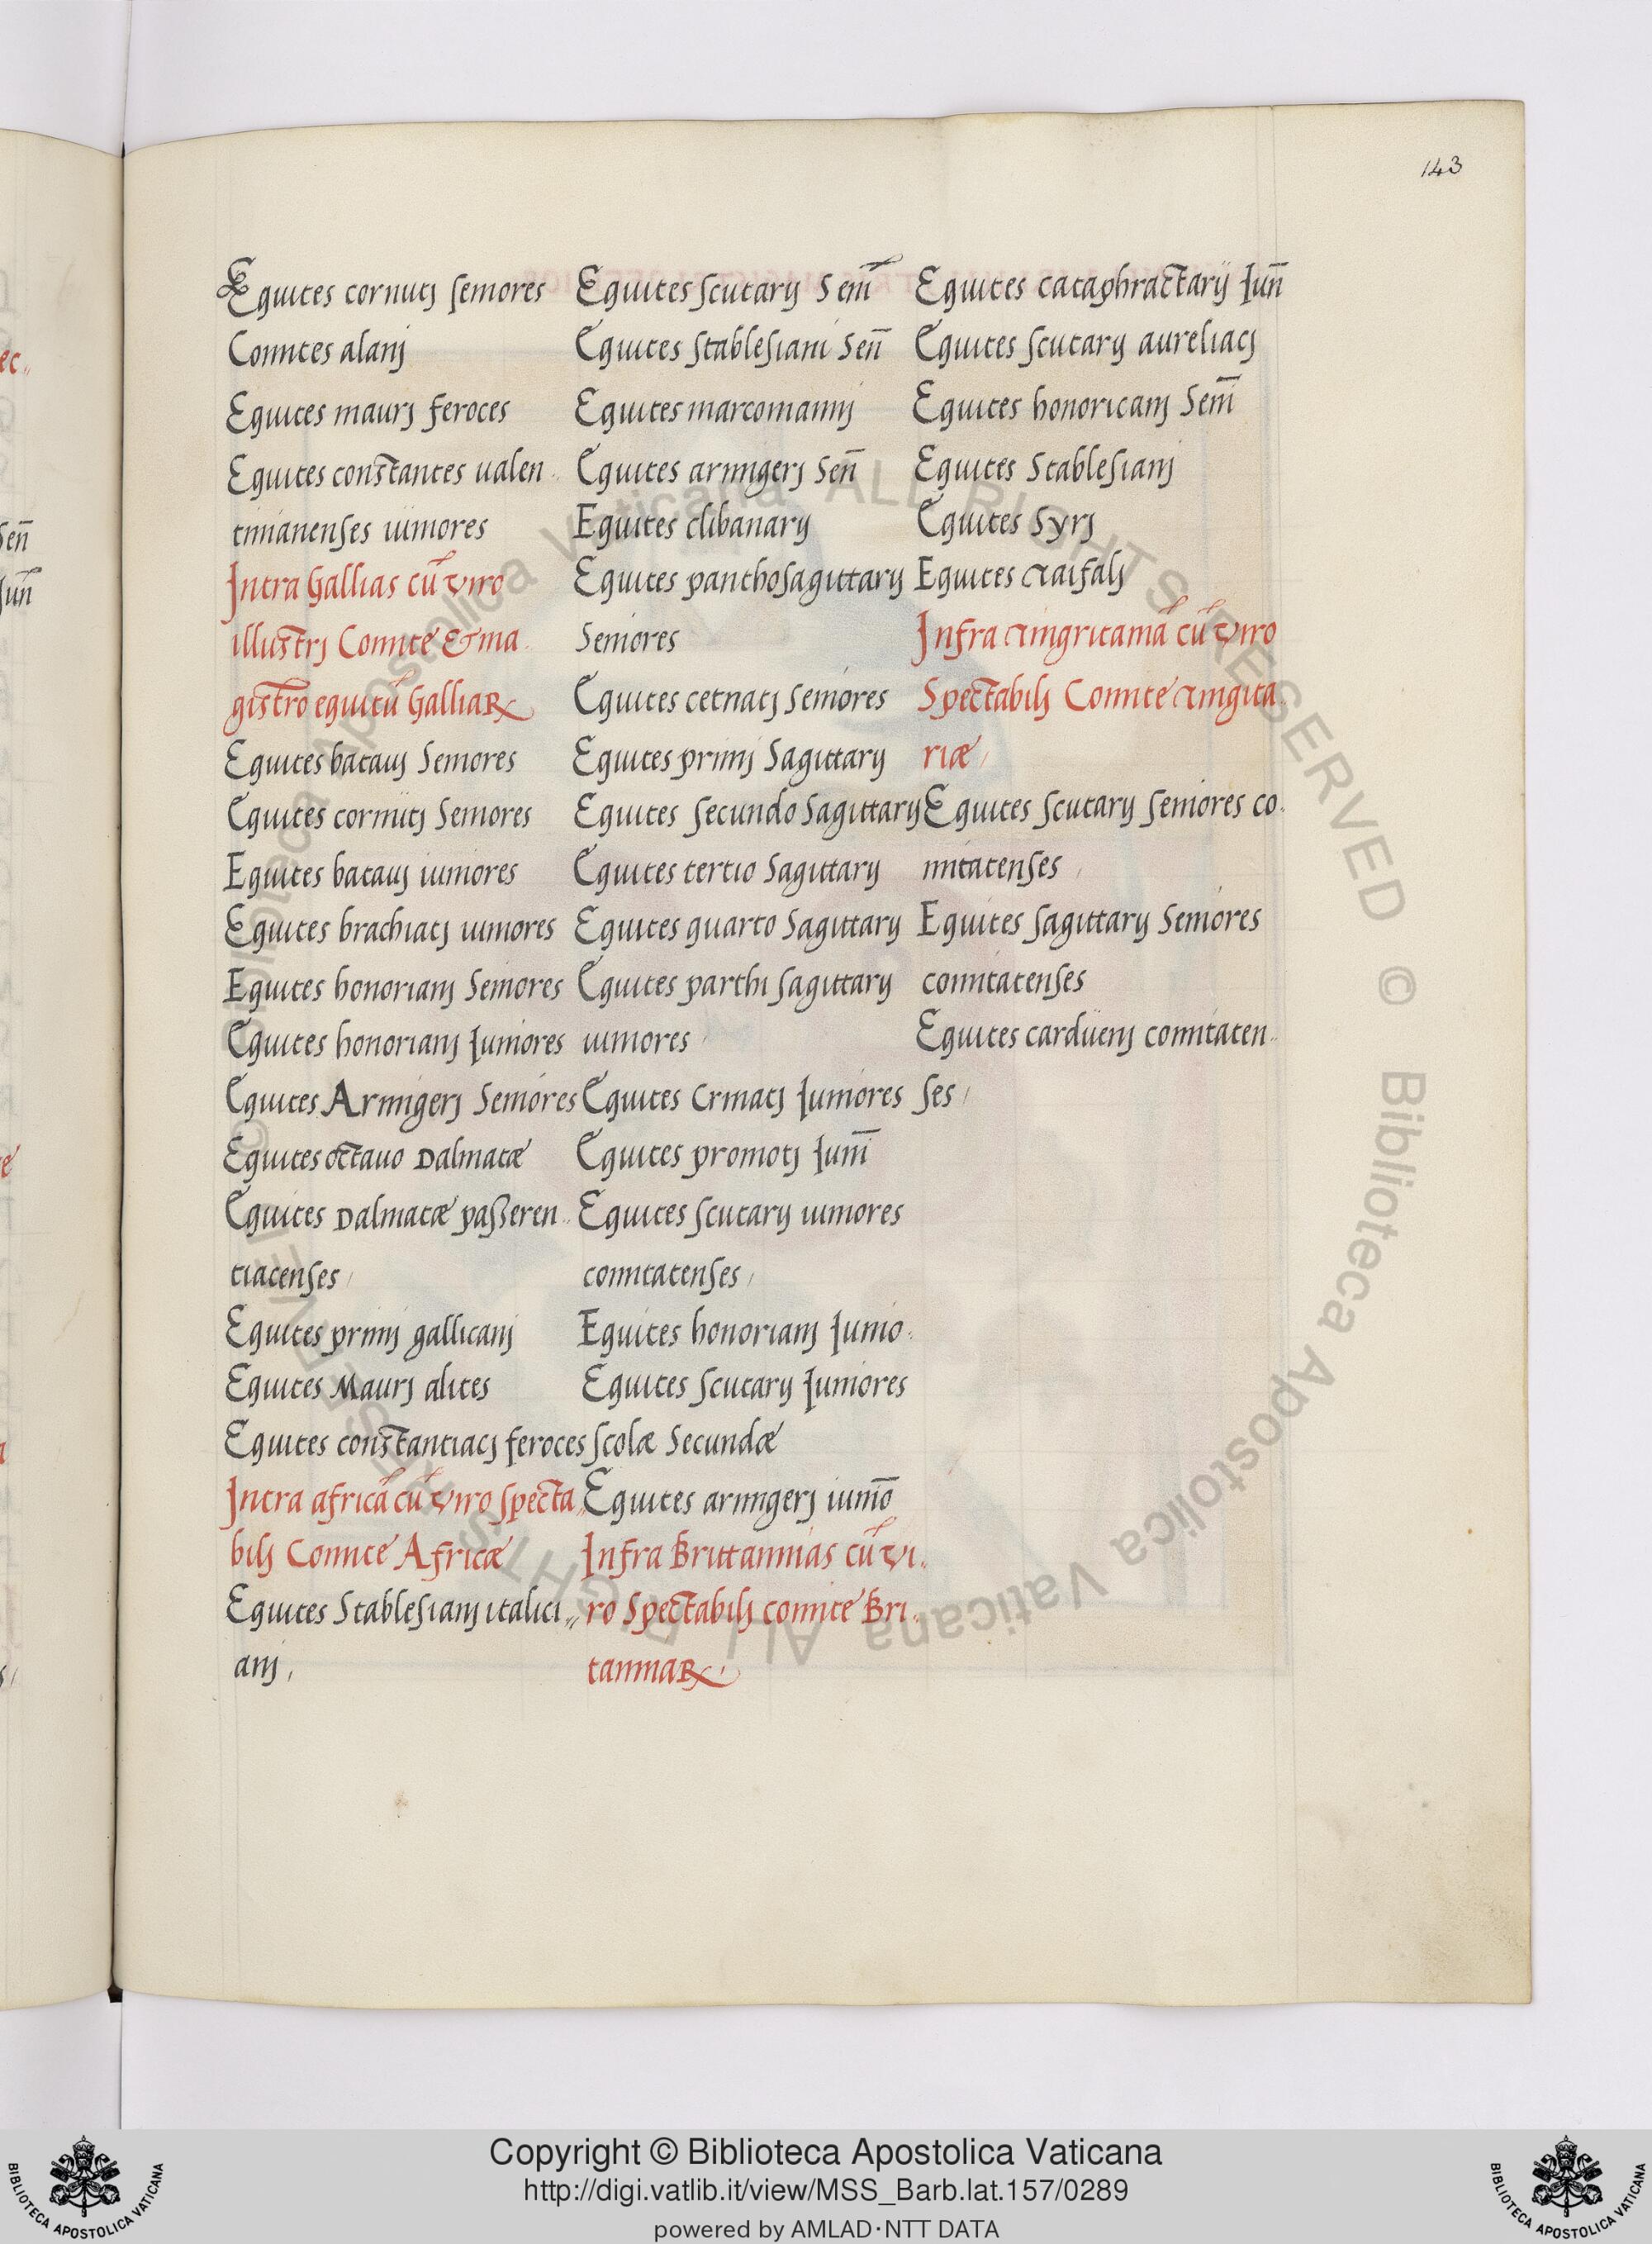 143
Equites cornutj seniores
Comites alanj
Equites maurj feroces
Equites constantes ualen
tinianenses iuniores
Intra Gallias cū viro
illustrj Comite & ma
gistro equitū Galliaꝝ
Equites batauj Seniores
Equites cornutj Seniores
Equites batauj iuniores
Equites brachiatj iuniores
Equites honorianj Seniores
Equites honorianj Iuniores
Equites Armigerj Seniores
Equites octauo Dalmatæ
Equites Dalmatæ passeren
tiacenses
Equites primj gallicanj
Equites Maurj alites
Equites constantiacj feroces
Intra africā cū viro specta
bilj Comite Africæ
Equites Stablesianj italici
anj
Equites scutarij Seni̅
Equites stablesiani Señ
Equites marcomannj
Equites armigerj Señ
Equites clibanarij
Equites panthosagittarij
Seniores
Equites cetnatj Seniores
Equites primj Sagittarij
Equites secundo Sagittarij
Equites tertio Sagittarij
Equites quarto Sagittarij
Equites parthi sagittarij
iuniores
Equites Crinatj Iuniores
Equites promotj Iuni̅
Equites scutarij iuniores
comitatenses
Equites honorianj Iunio
Equites scutarij Iuniores
scolæ Secundæ
Equites armigerj iunio̅
Infra Brittannias cū vi
ro Spectabilj comite Bri
tanniaꝝ
Equites cataphractarij Iuñ
Equites scutarij aureliacj
Equites honoricanj Seni̅
Equites Stablesianj
Equites Syrj
Equites taifalj
Infra tingitaniā cū viro
Spectabilj Comite tingita
riæ
Equites scutarij seniores co
mitatenses
Equites sagittarij Seniores
comitatenses
Equites cardüenj comitaten
ses
© Biblioteca Apostolica Vaticana ALL RIGHTS RESERVED © Biblioteca Apostolica Vaticana ALL RIGHTS RESERVED
Copyright © Biblioteca Apostolica Vaticana
http://digi.vatlib.it/view/MSS_Barb.lat.157/0289
powered by AMLAD·NTT DATA
BIBLIOTECA APOSTOLICA VATICANA
BIBLIOTECA APOSTOLICA VATICANA